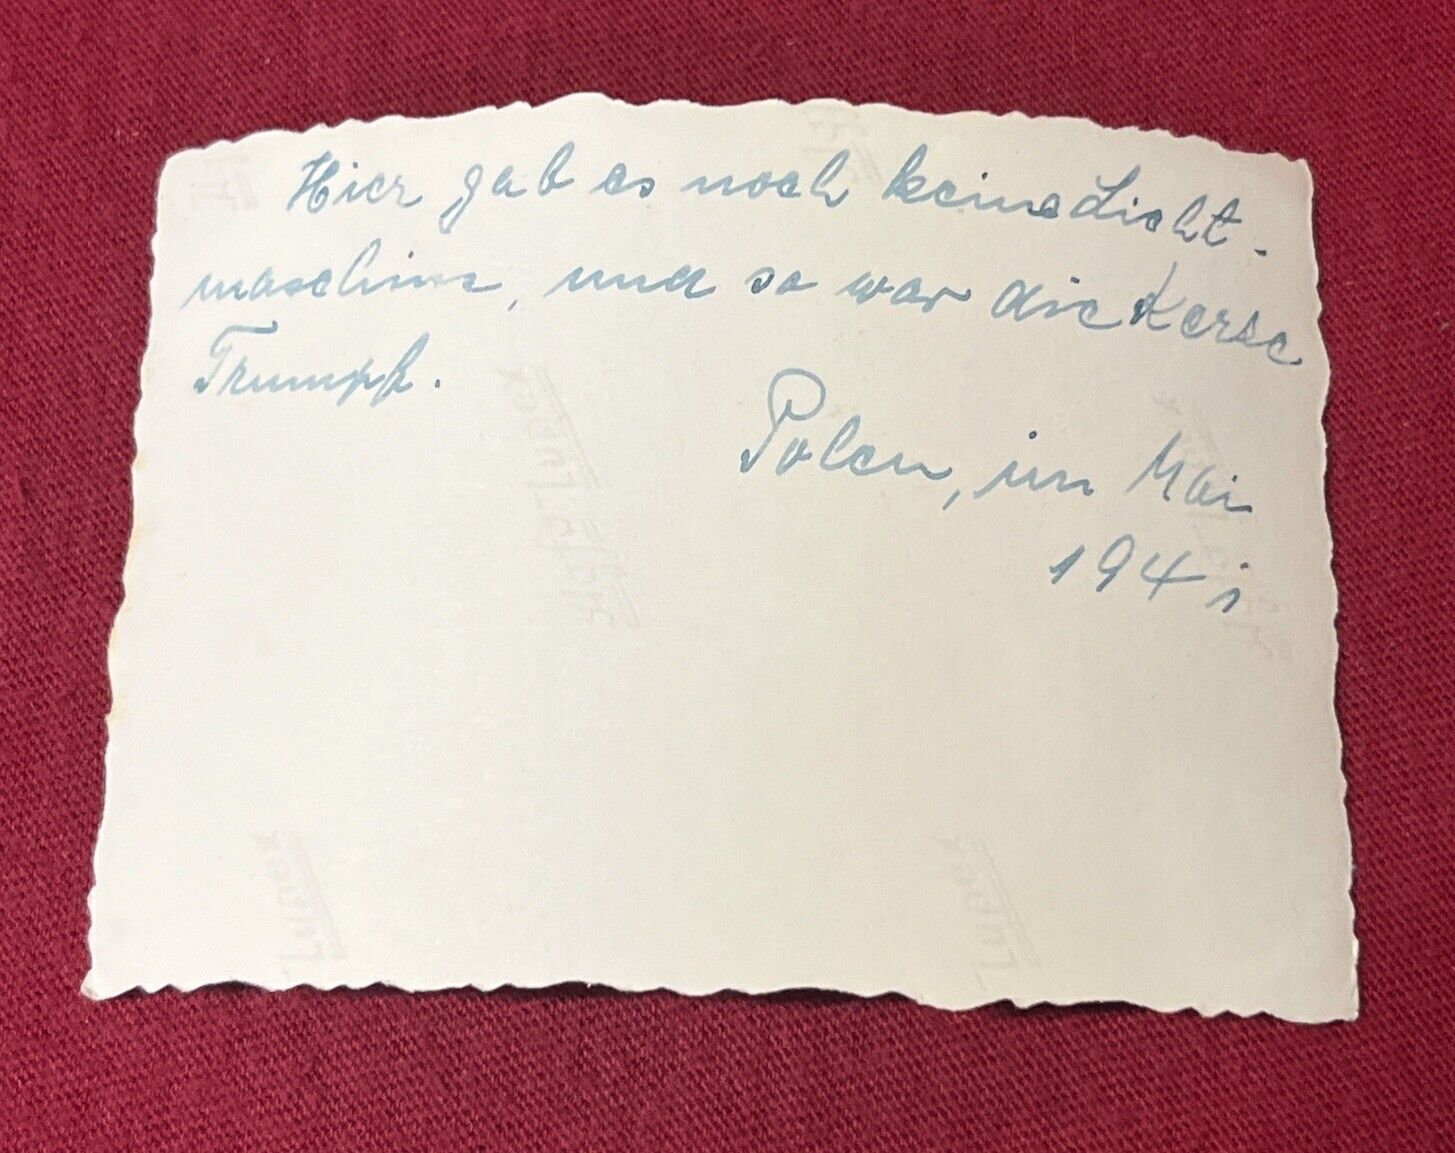 Hier gab es noch keine Licht-
maschine, und so war die Kerse
Trumpf.
Polen, im Mai
1941